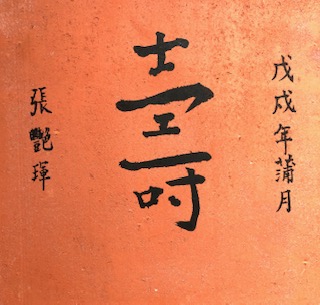 戊戌年蒲月
壽
張艷琿